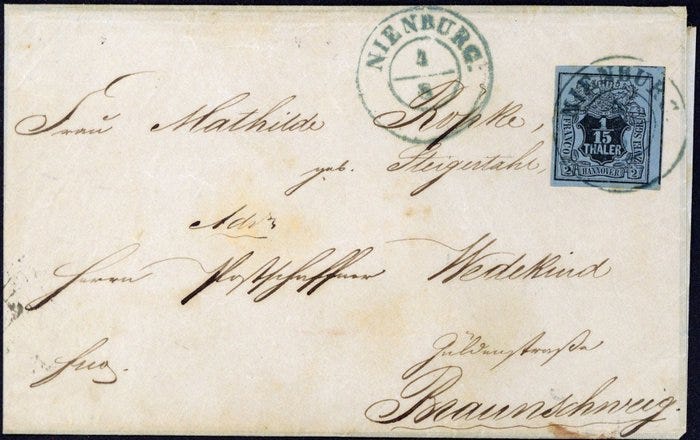 NIENBURG.
4
8
NIENBUR
1
15
THALER
FRANCO
HANNOVER
2 2
Frau Mathilde Röpke,
geb. Steigertahl,
Adr:
Herrn Postschaffner Wedekind
fco.
Güldenstraße
Braunschweig.